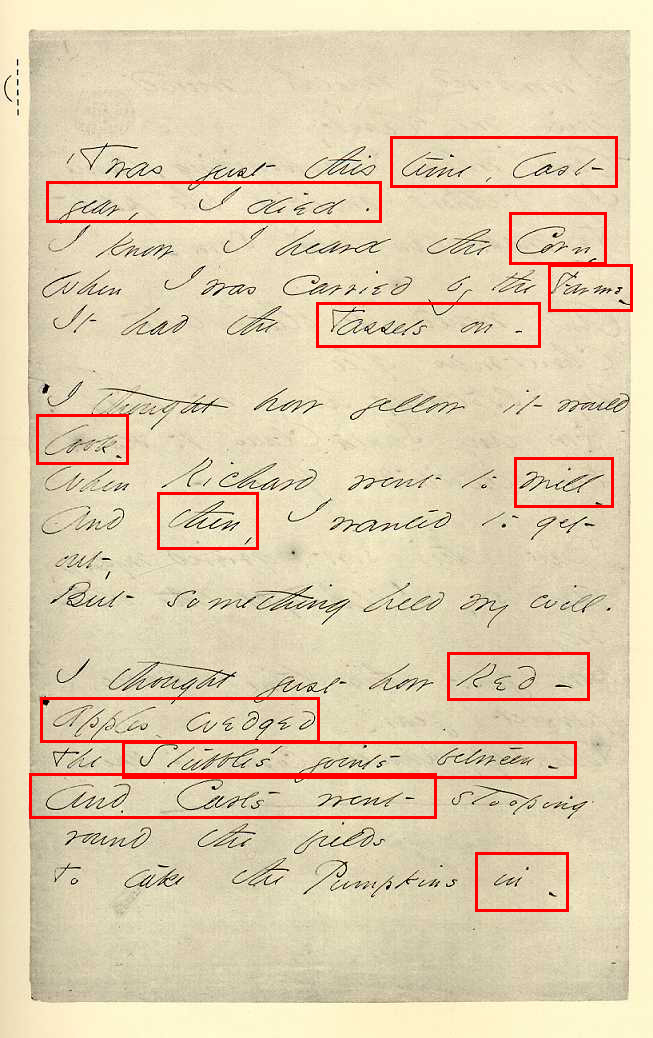 'Twas just this time, last
year, I died.
I know I heard the Corn,
When I was Carried by the Farms -
It had the Tassels on -
I thought how yellow it would
look -
When Richard went to mill -
And then, I wanted to get
out,
But something held my will.
I thought just how Red -
Apples wedged
The Stubble's joints between -
And Carts went stooping
round the fields
To take the Pumpkins in -